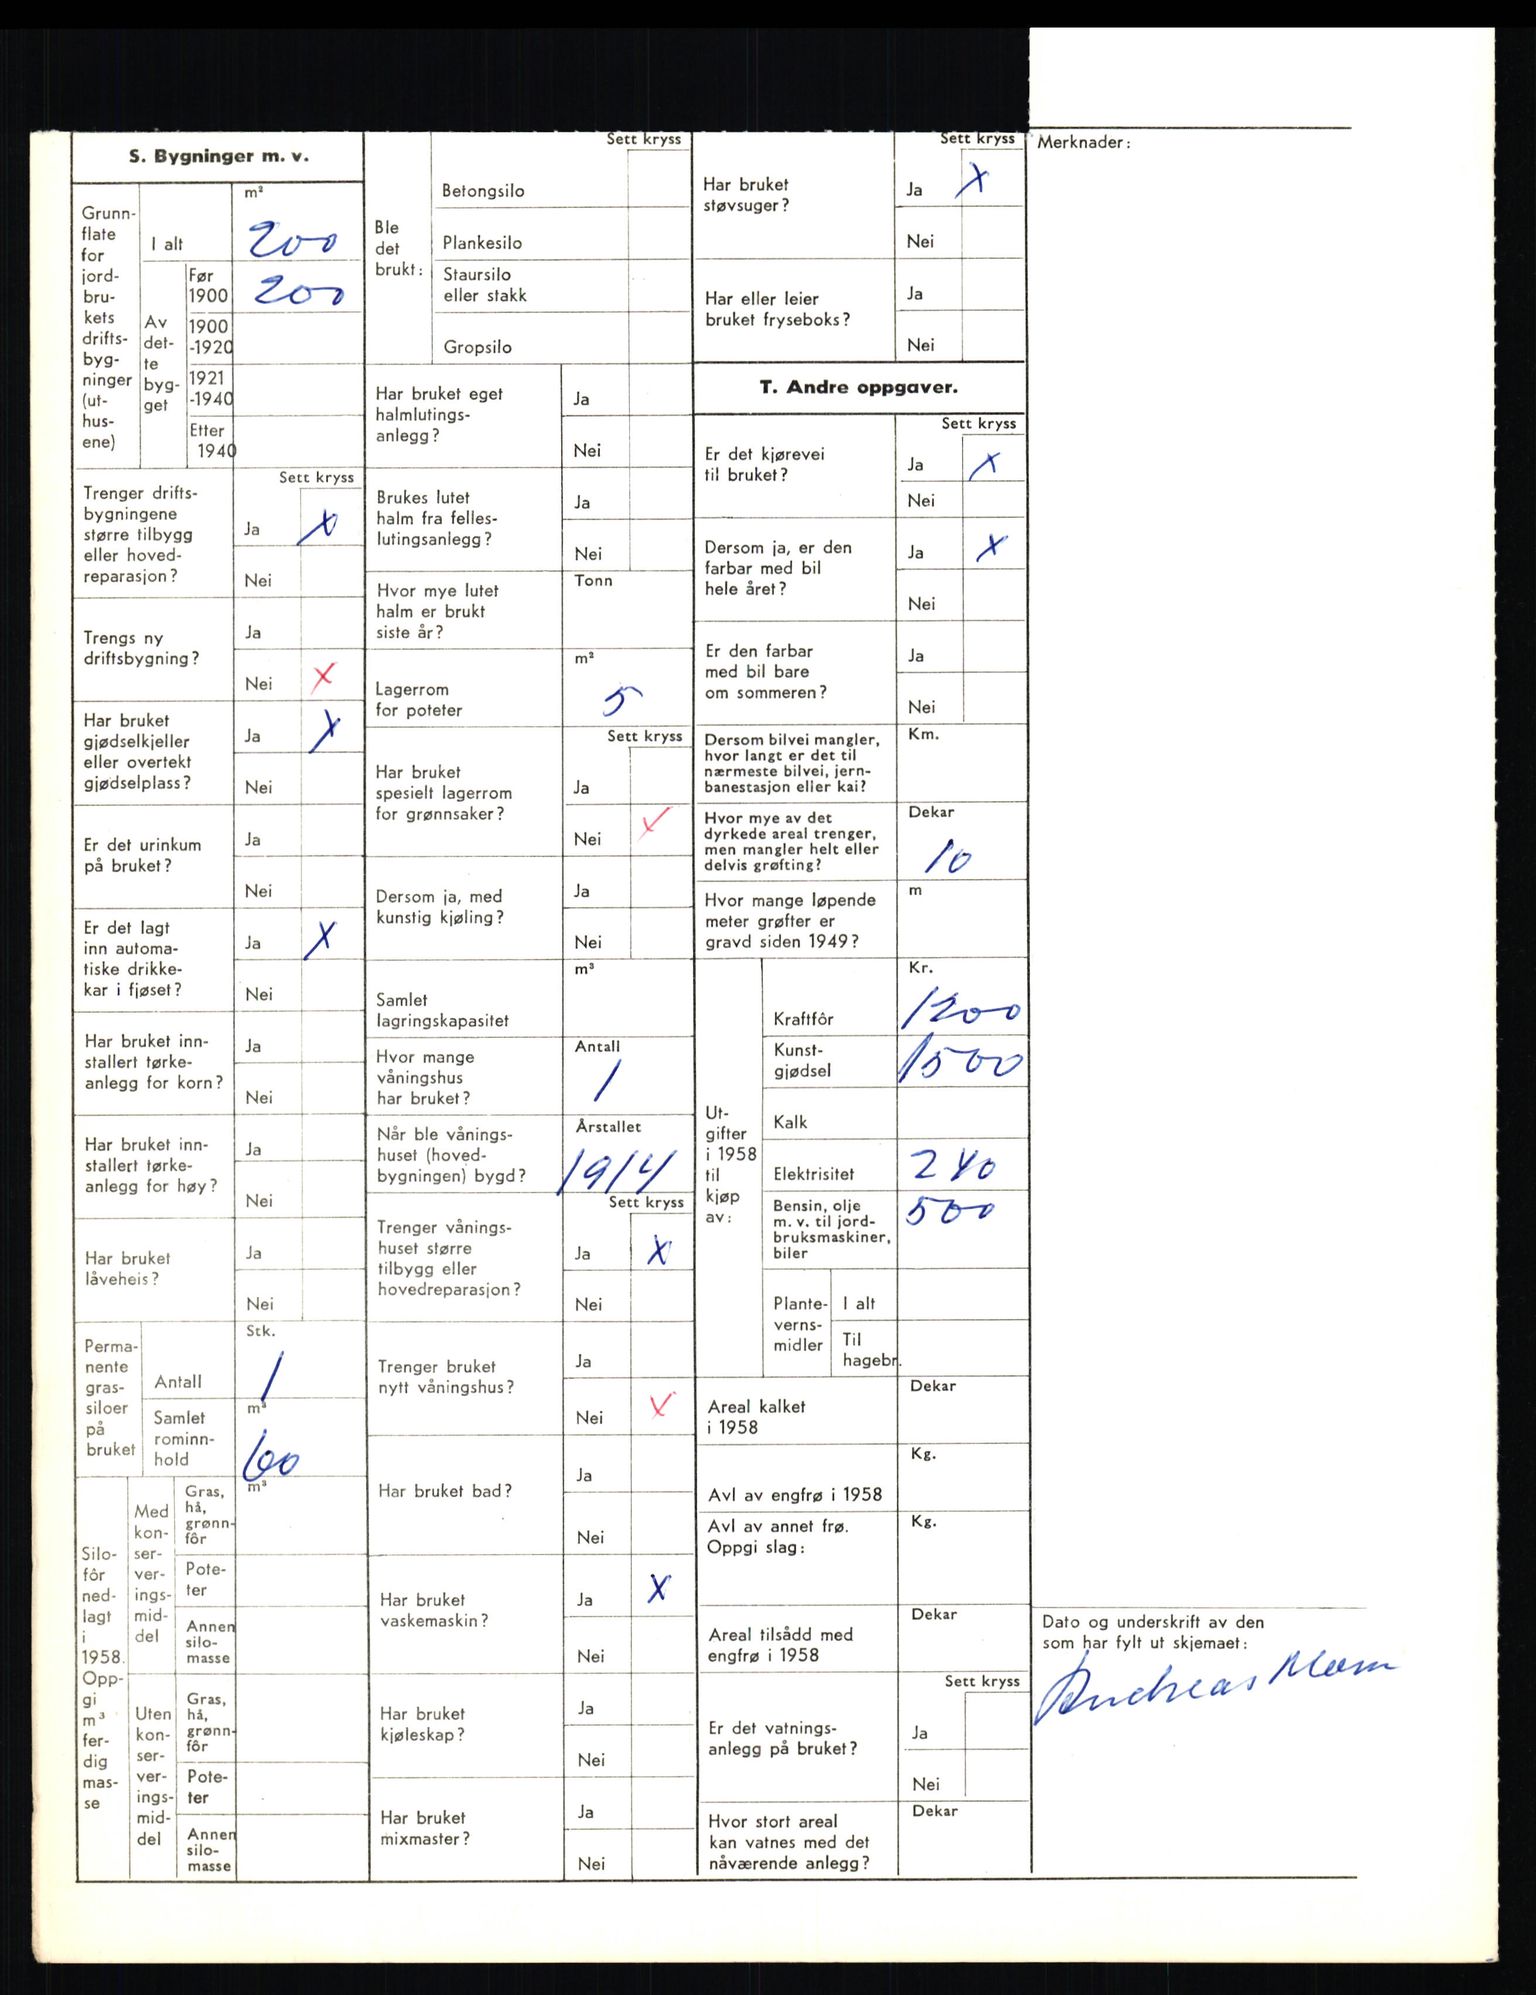 S. Bygninger m. v.
Grunn-
flate
for
jord-
bru-
kets
drifts-
byg-
ninger
(ut-
hus-
ene)
m²
I alt 200
Av
det-
te
byg-
get
Før
1900 200
1900
-1920
1921
-1940
Etter
1940
Sett kryss
Trenger drifts-
bygningene
større tilbygg
eller hoved-
reparasjon?
Ja X
Nei
Trengs ny
driftsbygning?
Ja
Nei X
Har bruket
gjødselkjeller
eller overtekt
gjødselplass?
Ja X
Nei
Er det urinkum
på bruket?
Ja
Nei
Er det lagt
inn automa-
tiske drikke-
kar i fjøset?
Ja X
Nei
Har bruket inn-
stallert tørke-
anlegg for korn?
Ja
Nei
Har bruket inn-
stallert tørke-
anlegg for høy?
Ja
Nei
Har bruket
låveheis?
Ja
Nei
Perma-
nente
gras-
siloer
på
bruket
Stk.
Antall 1
Samlet
rominn-
hold
m³
60
Silo-
fôr
ned-
lagt
i
1958.
Opp-
gi
m³
fer-
dig
mas-
se
Med
kon-
ser-
ver-
ings-
mid-
del
m³
Gras,
hå,
grønn-
fôr
Pote-
ter
Annen
silo-
masse
Uten
kon-
ser-
ver-
ings-
mid-
del
Gras,
hå,
grønn-
fôr
Pote-
ter
Annen
silo-
masse
Sett kryss
Ble
det
brukt:
Betongsilo
Plankesilo
Staursilo
eller stakk
Gropsilo
Har bruket eget
halmlutings-
anlegg?
Ja
Nei
Brukes lutet
halm fra felles-
lutingsanlegg?
Ja
Nei
Hvor mye lutet
halm er brukt
siste år?
Tonn
Lagerrom
for poteter
m²
5
Sett kryss
Har bruket
spesielt lagerrom
for grønnsaker?
Ja
Nei ✓
Dersom ja, med
kunstig kjøling?
Ja
Nei
Samlet
lagringskapasitet
m³
Hvor mange
våningshus
har bruket?
Antall
1
Når ble vånings-
huset (hoved-
bygningen) bygd?
Årstallet
1914
Sett kryss
Trenger vånings-
huset større
tilbygg eller
hovedreparasjon?
Ja X
Nei
Trenger bruket
nytt våningshus?
Ja
Nei ✓
Har bruket bad?
Ja
Nei
Har bruket
vaskemaskin?
Ja X
Nei
Har bruket
kjøleskap?
Ja
Nei
Har bruket
mixmaster?
Ja
Nei
Sett kryss
Har bruket
støvsuger?
Ja X
Nei
Har eller leier
bruket fryseboks?
Ja
Nei
T. Andre oppgaver.
Sett kryss
Er det kjørevei
til bruket?
Ja X
Nei
Dersom ja, er den
farbar med bil
hele året?
Ja X
Nei
Er den farbar
med bil bare
om sommeren?
Ja
Nei
Dersom bilvei mangler,
hvor langt er det til
nærmeste bilvei, jern-
banestasjon eller kai?
Km.
Hvor mye av det
dyrkede areal trenger,
men mangler helt eller
delvis grøfting?
Dekar
10
Hvor mange løpende
meter grøfter er
gravd siden 1949?
m
Ut-
gifter
i 1958
til
kjøp
av:
Kr.
Kraftfôr 1200
Kunst-
gjødsel 1500
Kalk
Elektrisitet 240
Bensin, olje
m. v. til jord-
bruksmaskiner,
biler
500
Plante-
verns-
midler
I alt
Til
hagebr.
Areal kalket
i 1958
Dekar
Avl av engfrø i 1958
Kg.
Avl av annet frø.
Oppgi slag:
Kg.
Areal tilsådd med
engfrø i 1958
Dekar
Sett kryss
Er det vatnings-
anlegg på bruket?
Ja
Nei
Hvor stort areal
kan vatnes med det
nåværende anlegg?
Dekar
Merknader:
Dato og underskrift av den
som har fylt ut skjemaet:
Andreas